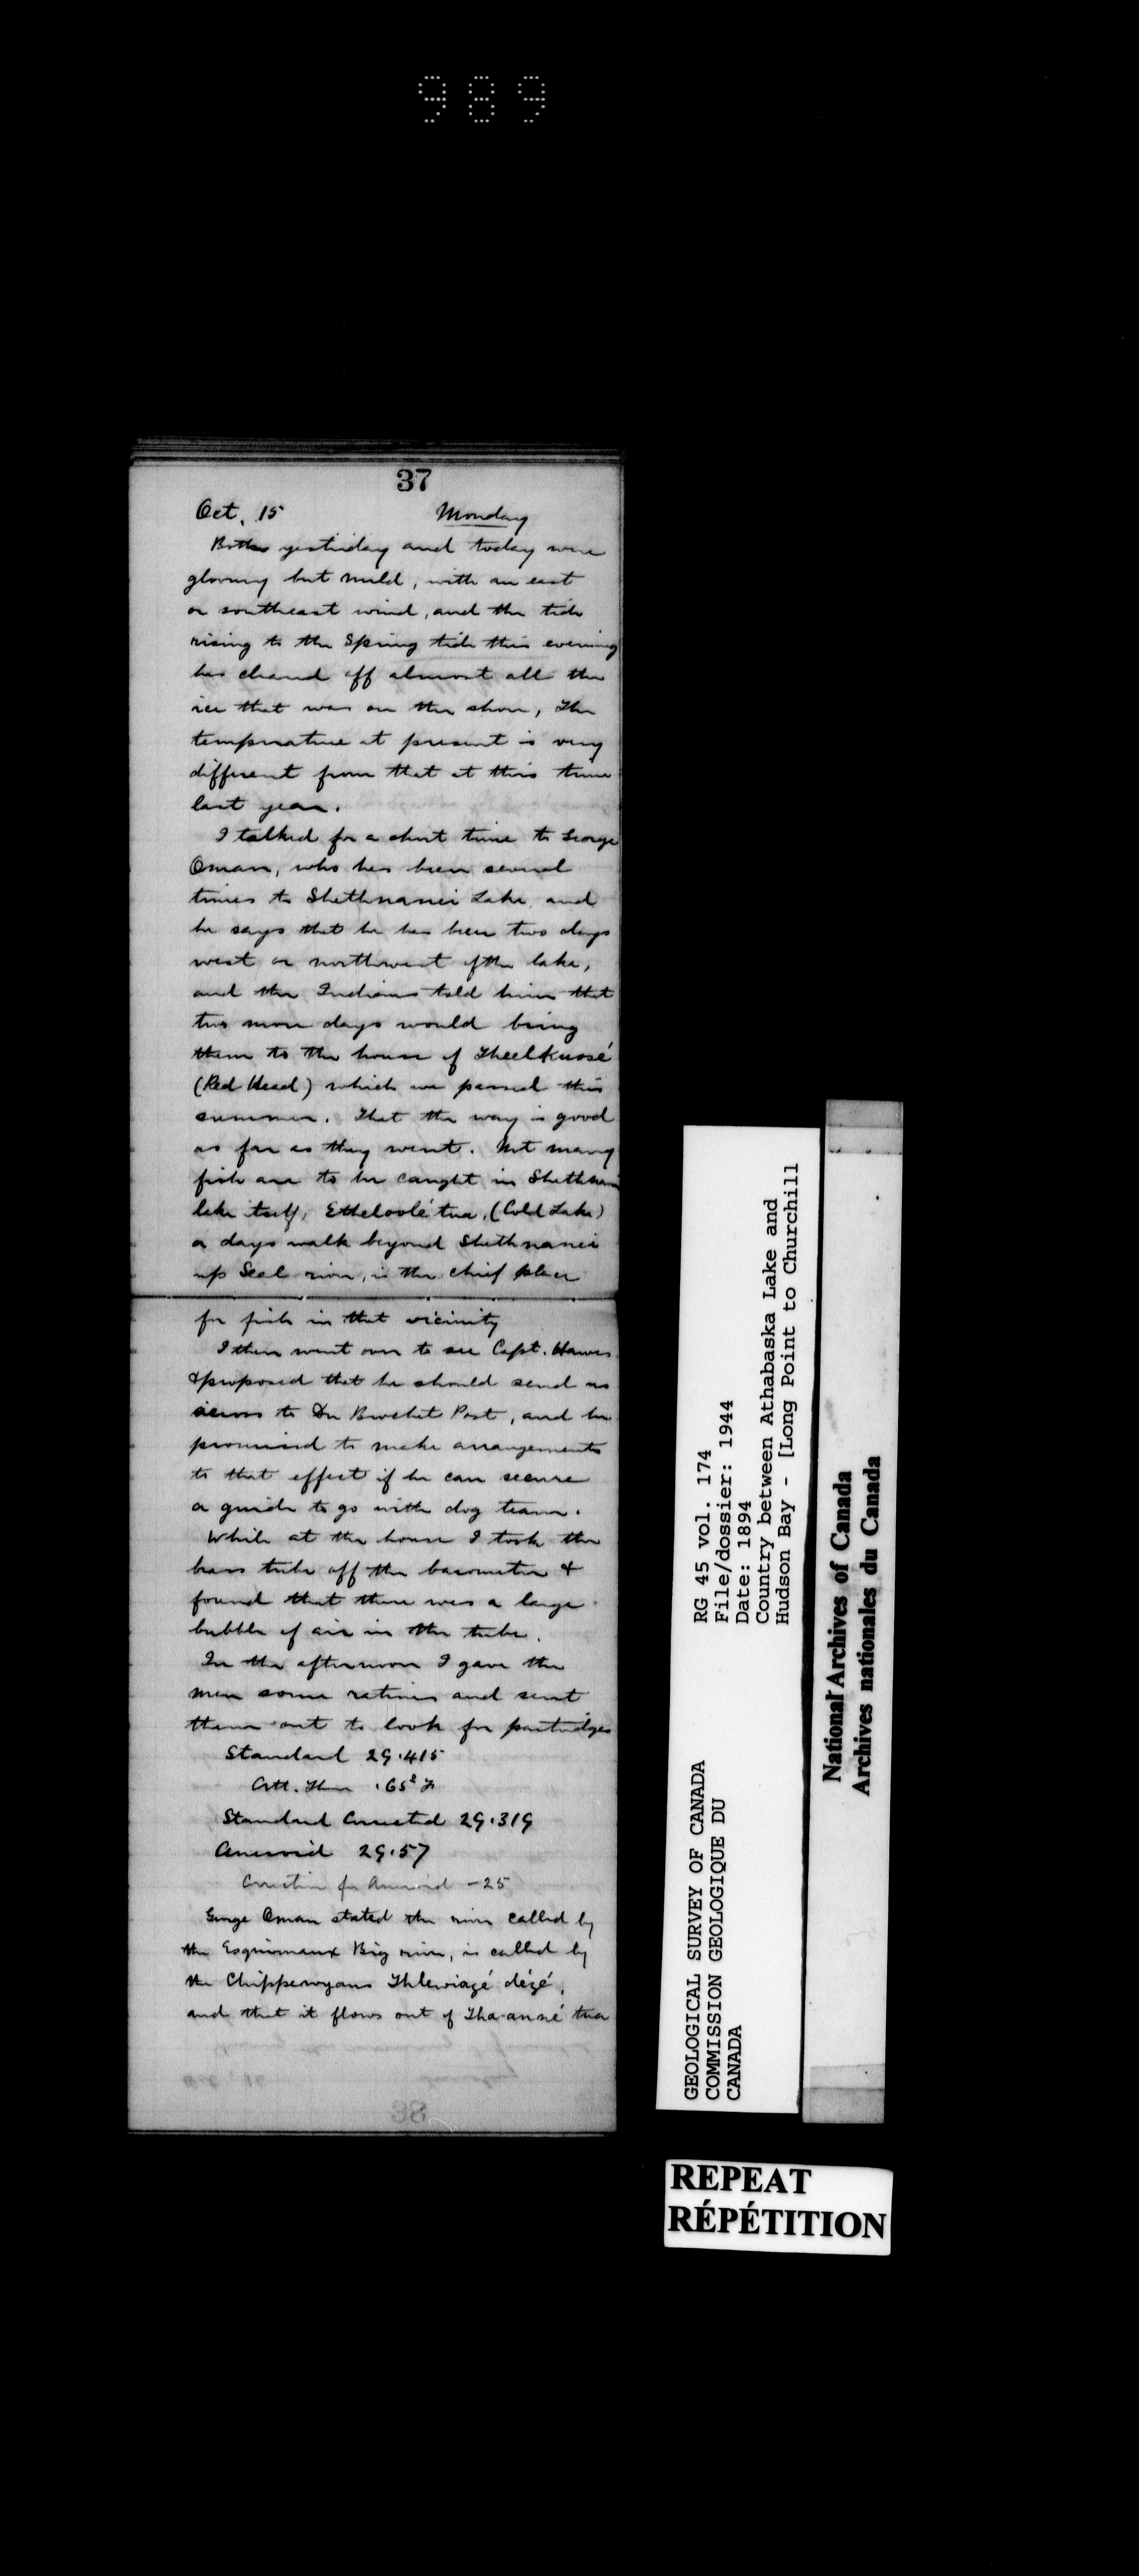 989
37
Oct. 15 Monday
Both yesterday and today were
gloomy but mild, with an east
or southeast wind, and the tide
rising to the Spring tide this evening
has cleared off almost all the
ice that was on the shore, The
temperature at present is very
different from that at this time
last year.
I talked for a short time to George
Oman, who has been several
times to Shethnanei Lake, and
he says that he has been two days
west or northwest of the lake,
and the Indians told him that
two more days would bring
them to the house of Theelkussé
(Red Head) which we passed this
summer. That the way is good
as far as they went. Not many
fish are to be caught in Shethnanei
lake itself, Etheloolé tua, (Cold Lake)
a days walk beyond Shethnanei
up Seal river, is the chief place
for fish in that vicinity
I then went over to see Capt. Hawes
& proposed that he should send us
across to Du Brochet Post, and he
promised to make arrangements
to that effect if he can secure
a guide to go with dog team.
While at the house I took the
brass tube off the barometer &
found that there was a large
bubble of air in the tube.
In the afternoon I gave the
men some rations and sent
them out to look for partridges
Standard 29.415
Att. Ther .65° F
Standard Corrected 29.319
Aneroid 29.57
Correction for Aneroid -25
George Oman stated the river called by
the Esquimaux Big river, is called by
the Chippewyans Thlewiazé dézé,
and that it flows out of Tha-anné tua
38
RG 45 vol. 174
File/dossier: 1944
Date: 1894
Country between Athabaska Lake and
Hudson Bay - [Long Point to Churchill
GEOLOGICAL SURVEY OF CANADA
COMMISSION GEOLOGIQUE DU
CANADA
National Archives of Canada
Archives nationales du Canada
REPEAT
RÉPÉTITION